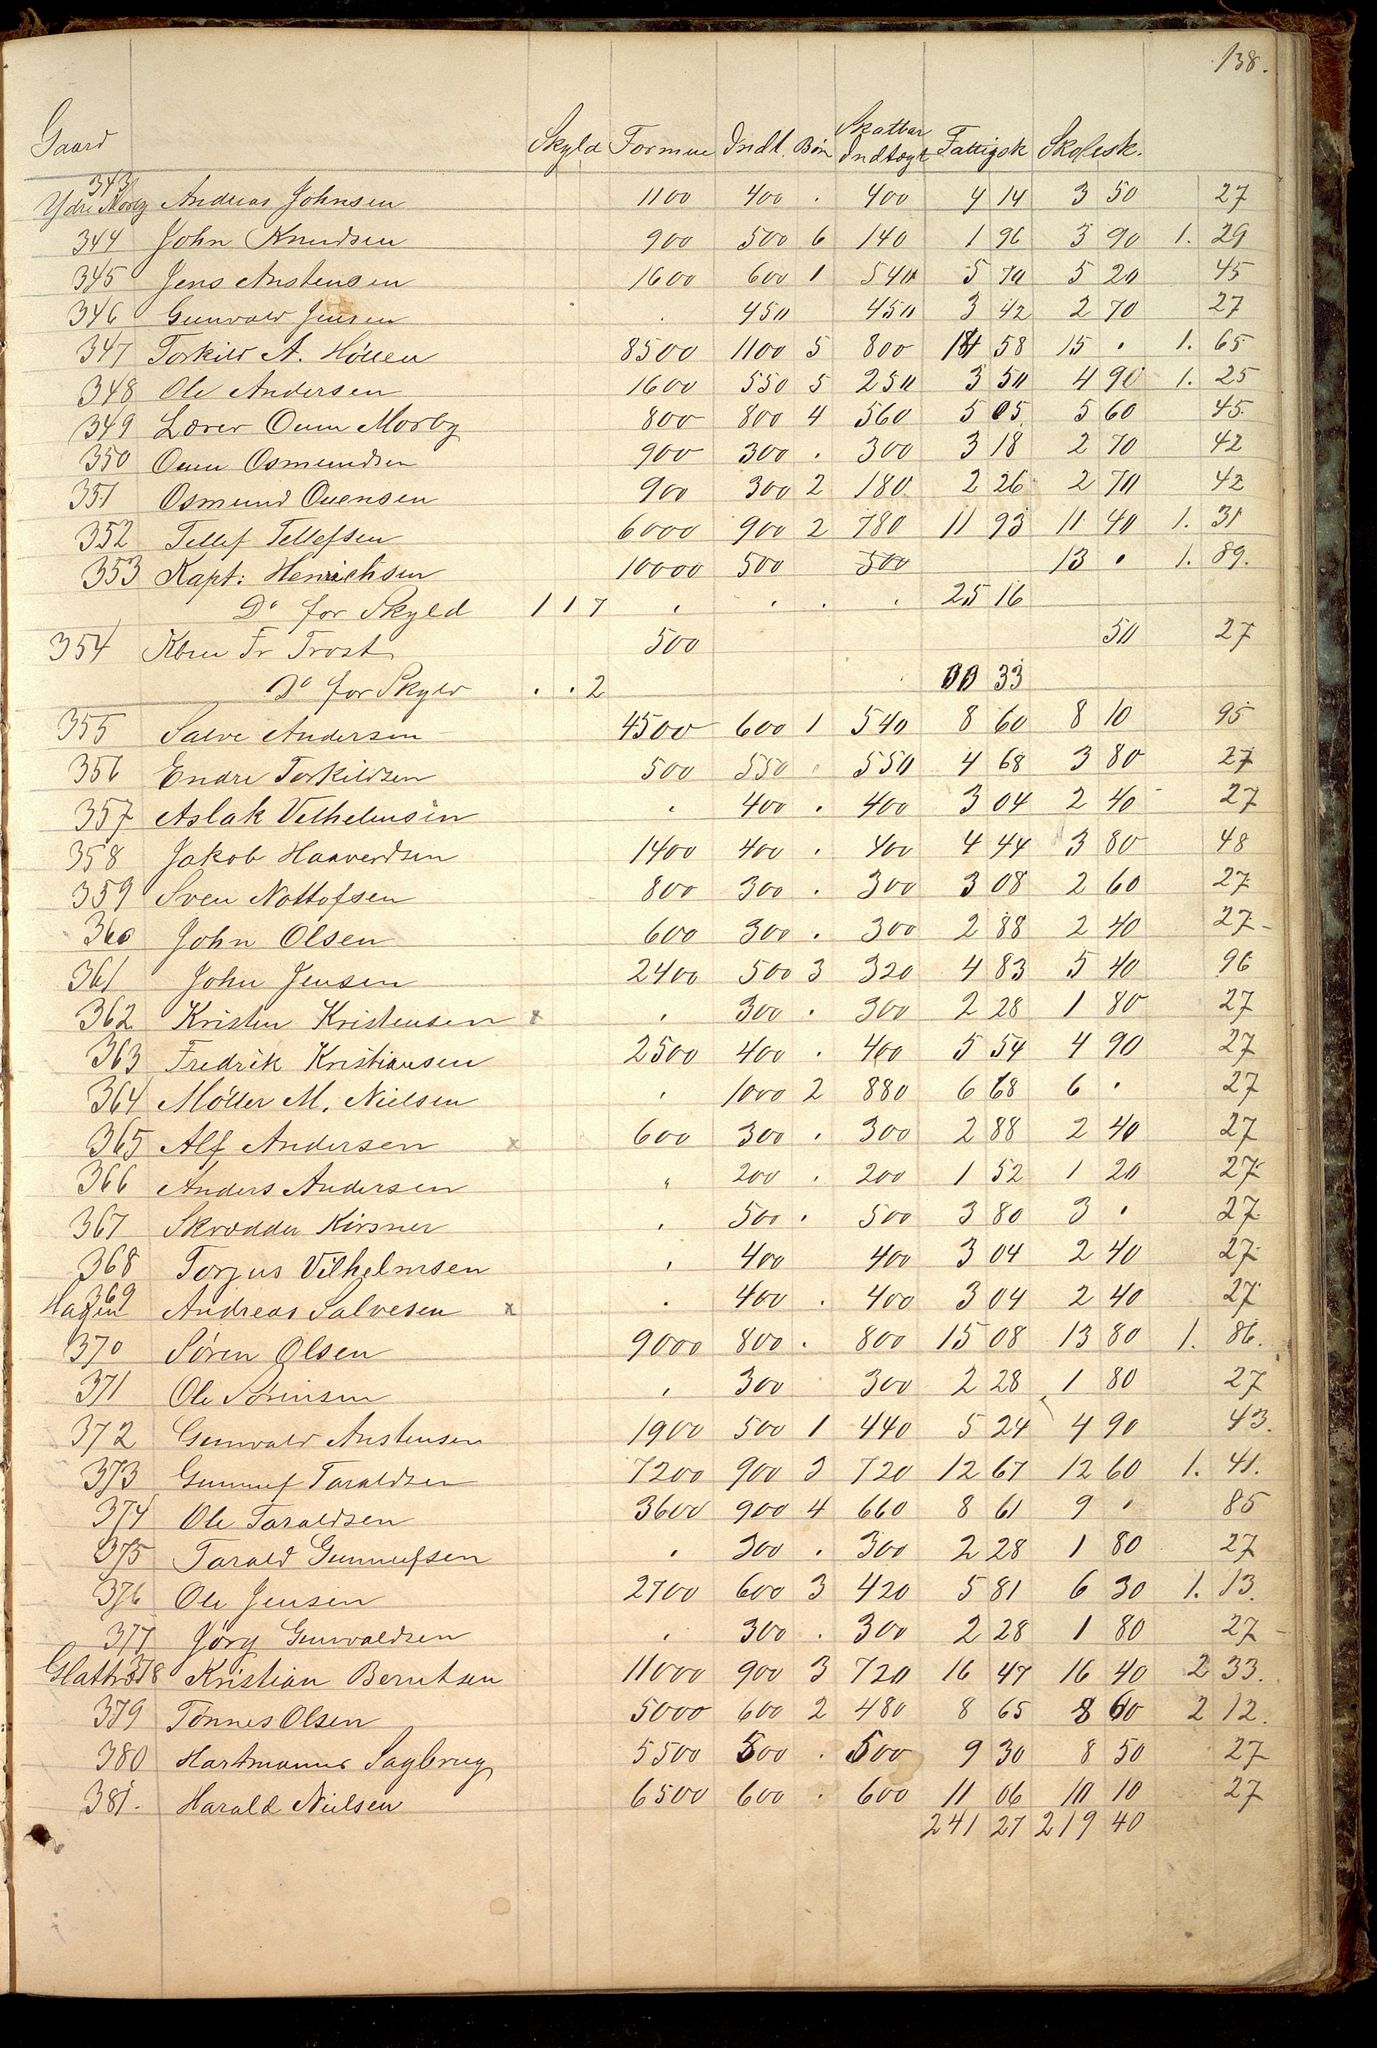 138.
Gaard Skyld Formue Indt. Bør Skatbar Indtægt Fattigsk Skolesk.
343 Ydre Morby Andreas Johnsen 1100 400 . 400 4 14 3 50 27
344 John Knudsen 900 500 6 140 1 96 3 90 1. 29
345 Jens Anstensen 1600 600 1 540 5 70 5 20 45
346 Gunvald Jensen . 450 450 3 42 2 70 27
347 Torkild A. Höllen 8500 1100 5 800 14 58 15 . 1. 65
348 Ole Andersen 1600 550 5 250 3 50 4 90 1. 25
349 Lærer Ouen Morby 800 800 4 560 5 05 5 60 45
350 Ouen Osmundsen 900 300 . 300 3 18 2 70 42
351 Osmund Ouensen 900 300 2 180 2 26 2 70 42
352 Tellef Tellefsen 6000 900 2 780 11 93 11 40 1. 31
353 Kapt: Henrichsen 10000 500 500 13 . 1. 89.
Do for Skyld 1 1 7 . . . . 25 16
354 Kbm Fr Trost 500 50 27
Do for Skyld . . 2 . 00 33
355 Salve Andersen 4500 600 1 540 8 60 8 10 95
356 Endre Torkildsen 500 550 . 550 4 68 3 80 27
357 Aslak Vilhelmsen . 400 . 400 3 04 2 40 27
358 Jakob Haaverdsen 1400 400 . 400 4 44 3 80 48
359 Sven Nottofsen 800 300 . 300 3 08 2 60 27
360 John Olsen 600 300 . 300 2 88 2 40 27
361 John Jensen 2400 500 3 320 4 83 5 40 96
362 Kristen Kristensen x . 300 . 300 2 28 1 80 27
363 Fredrik Kristiansen 2500 400 . 400 5 54 4 90 27
364 Möller M. Nielsen . 1000 2 880 6 68 6 . 27
365 Alf Andersen x 600 300 . 300 2 88 2 40 27
366 Anders Andersen " 200 . 200 1 52 1 20 27
367 Skrædder Kirsner . 500 . 500 3 80 3 . 27
368 Torjus Vilhelmsen . 400 400 3 04 2 40 27
369 Hagen Andreas Salvesen x . 400 . 400 3 04 2 40 27
370 Sören Olsen 9000 800 . 800 15 08 13 80 1. 86.
371 Ole Sörensen . 300 300 2 28 1 80 27
372 Gunvald Anstensen 1900 500 1 440 5 24 4 90 43.
373 Gunnuf Taraldsen 7200 900 3 720 12 67 12 60 1. 41.
374 Ole Taraldsen 3600 900 4 660 8 61 9 . 85
375 Tarald Gunnufsen . 300 . 300 2 28 1 80 27
376 Ole Jensen 2700 600 3 420 5 81 6 30 1. 13.
377 Jörg Gunvaldsen . 300 . 300 2 28 1 80 27
378 Glattred Kristian Berntsen 11000 900 3 720 16 47 16 40 2 33.
379 Tönnes Olsen 5000 600 2 480 8 65 8 60 2 12.
380 Hartmanns Sagbrug 5500 500 . 500 9 30 8 50 27
381. Harald Nielsen 6500 600 . 600 11 06 10 10 27
241 27 219 40